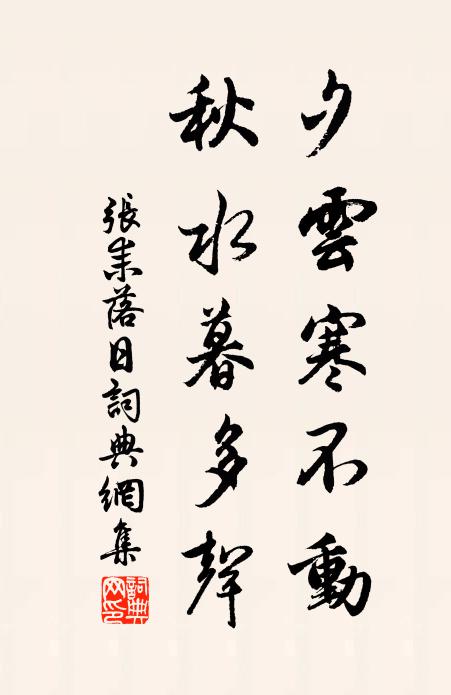 夕雲寒不動
秋水暮多聲
張耒落日詞典網集
詞典
网印